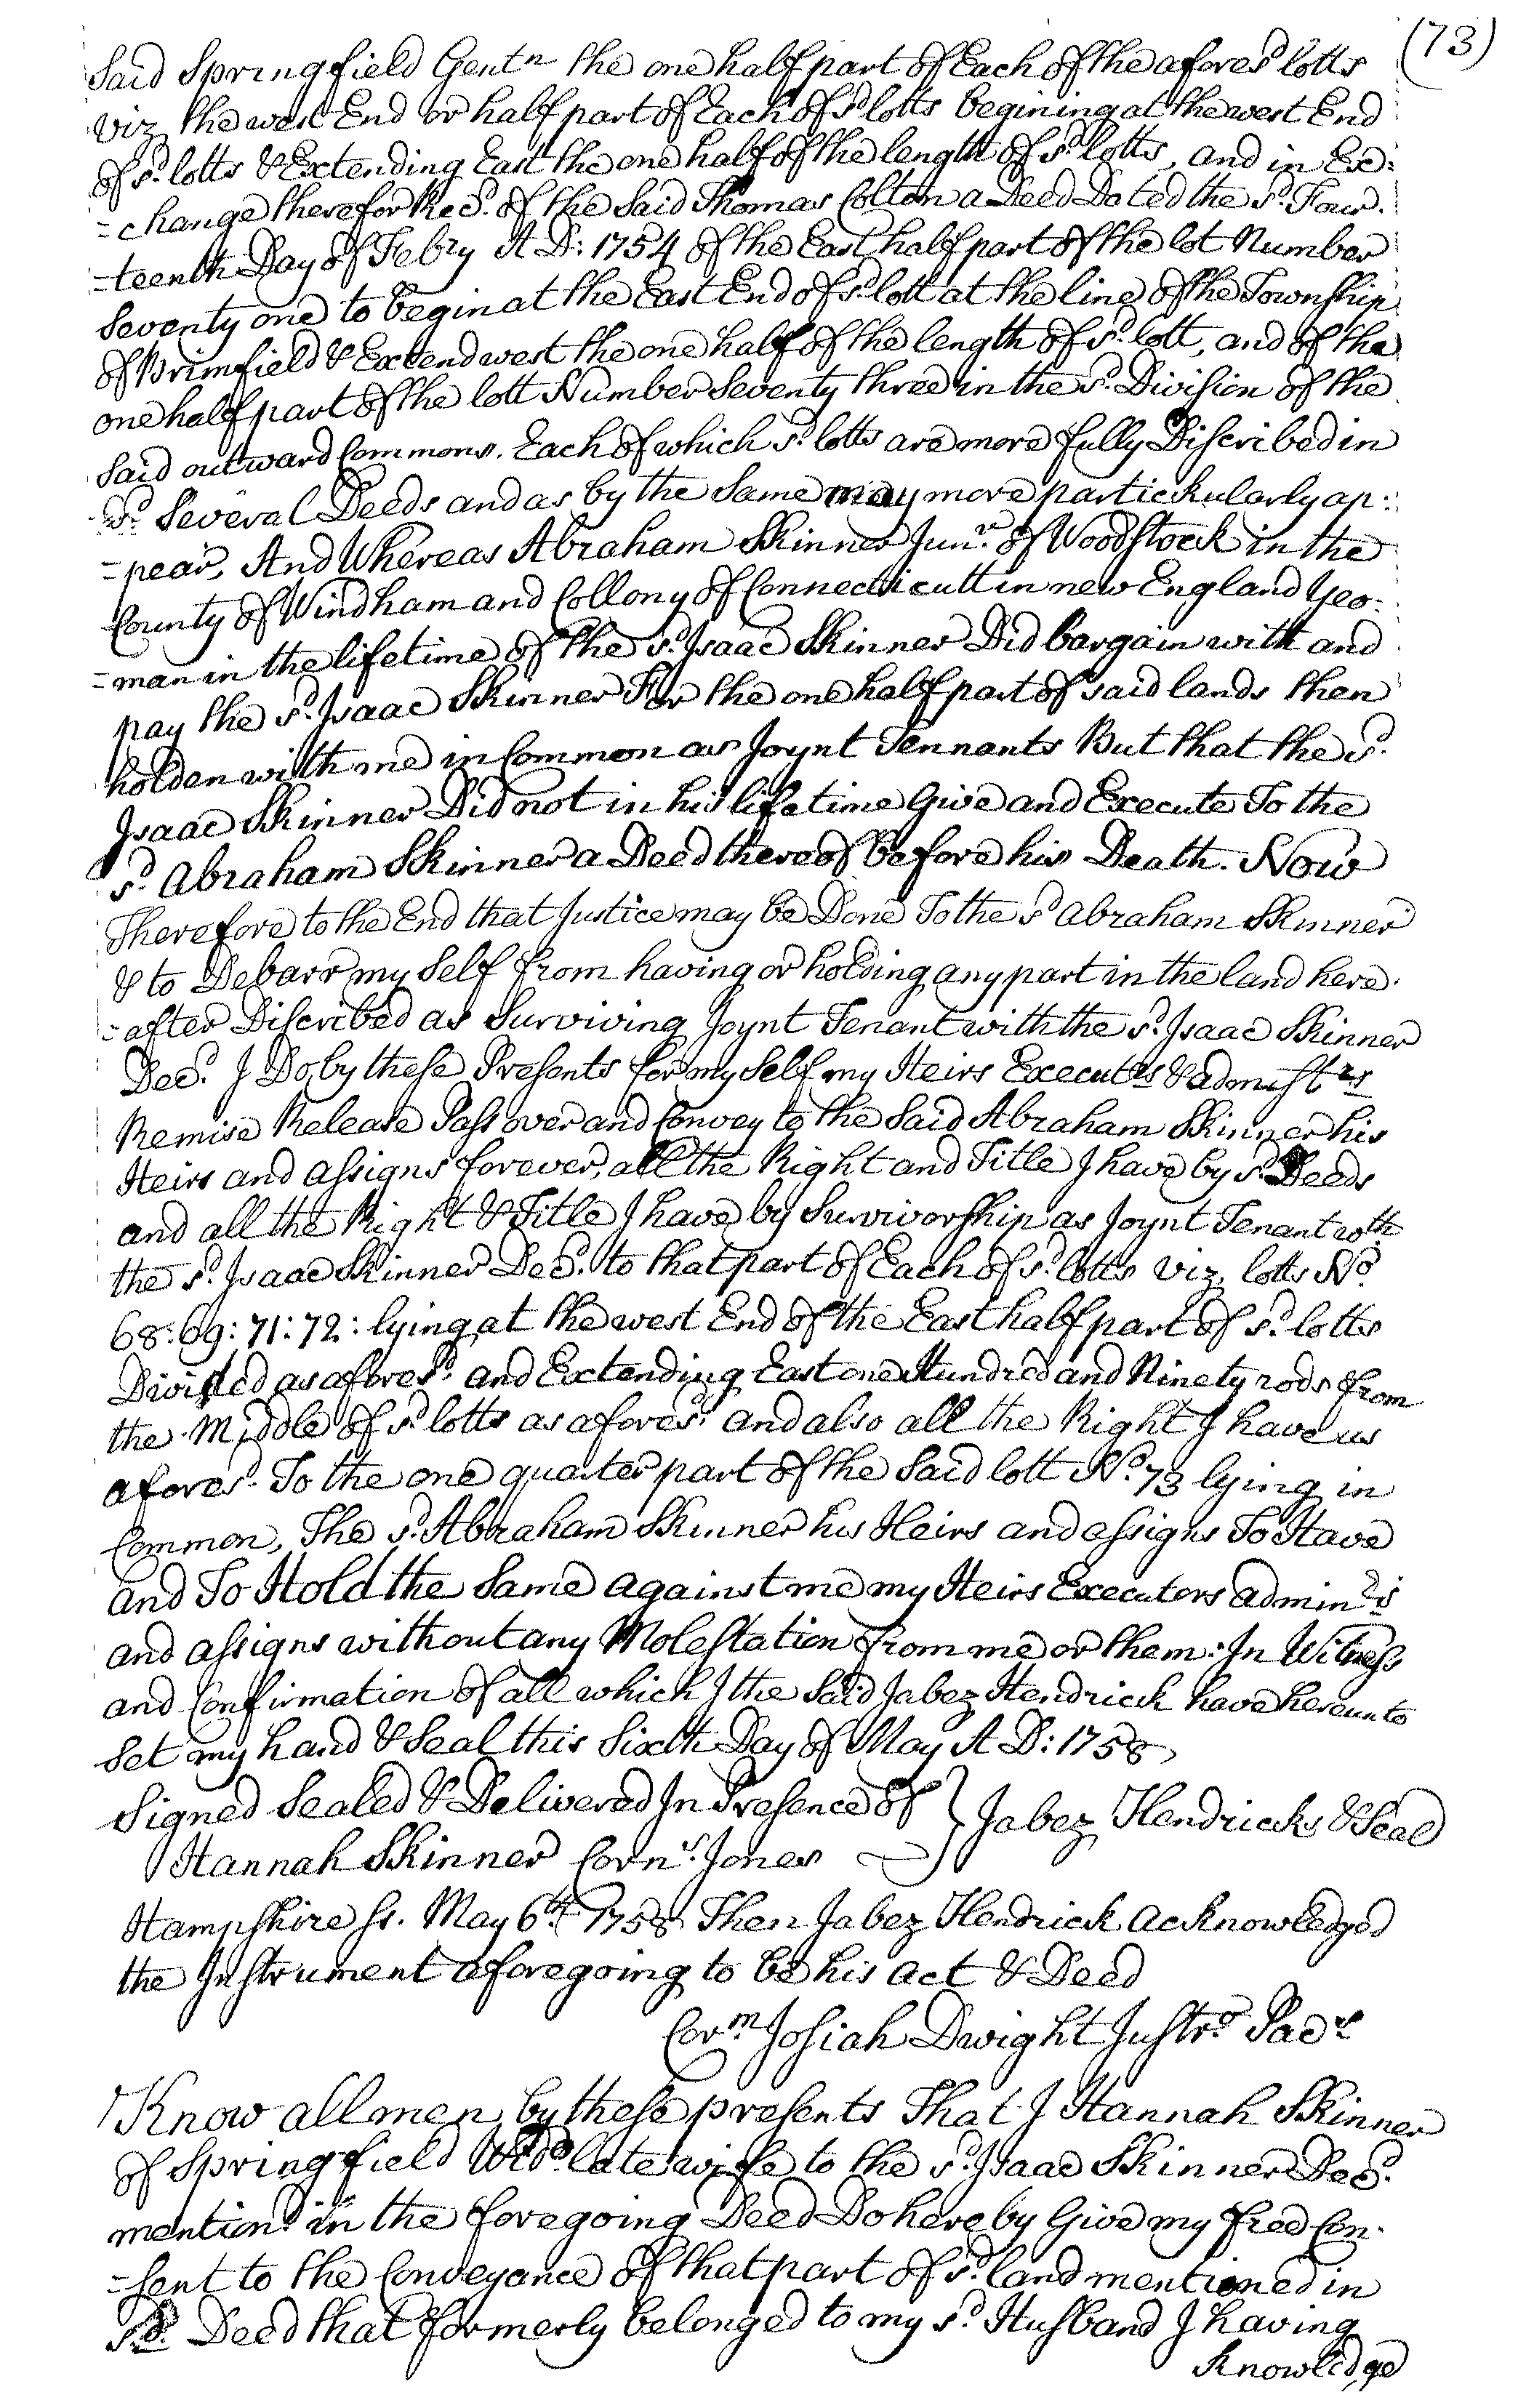 (73)
Said Springfield Gentn the one half part of Each of the afores.d lotts
viz the west End or half part of Each of s.d lotts begining at the west End
of s.d lotts & Extending East the one half of the length of s.d lotts, and in Ex:
=change therefor Rec.d of the Said Thomas Colton a Deed Dated the s.d Four.
=teenth Day of Febry A D: 1754 of the East half part of the lot Number
Seventy one to begin at the East End of s.d lott at the line of the Township
of Brimfield & Extend west the one half of the length of s.d lott, and of the
one half part of the lott Number Seventy three in the s.d Division of the
Said outward Commons. Each of which s.d lotts are more fully Discribed in
s.d Several Deeds and as by the Same may more partickularly ap:
=pear, And Whereas Abraham Skinner Jun.r of Woodstock in the
County of Windham and Collony of Connecticutt in new England Yeo:
=man in the lifetime of the s.d Isaac Skinner Did bargain with and
pay the s.d Isaac Skinner For the one half part of said lands then
holden with me in Common as Joynt Tennants But that the s.d
Isaac Skinner Did not in his life time Give and Execute To the
s.d Abraham Skinner a Deed thereof before his Death. Now
Therefore to the End that Justice may be Done To the s.d Abraham Skinner
& to Debarr my Self from having or holding any part in the land here.
=after Discribed as Surviving Joynt Tenant with the s.d Isaac Skinner
Dec.d I Do by these Presents for my Self my Heirs Execut.rs & admist.rs
Remise Release Pass over and Convey to the Said Abraham Skinner his
Heirs and assigns forever, all the Right and Title I have by s.d Deeds
and all the Right & Title I have by Survivorship as Joynt Tenant w.th
the s.d Isaac Skinner Dec.d to that part of Each of s.d lotts viz. lotts N.o
68: 69: 71: 72: lying at the west End of the East half part of s.d lotts
Divided as afores.d and Extending East one Hundred and Ninety rods from
the Middle of s.d lotts as afores.d and also all the Right I have as
afores.d To the one quarter part of the Said lott N.o 73 lying in
Common, The s.d Abraham Skinner his Heirs and assigns To Have
and To Hold the Same against me my Heirs Executors admin.rs
and assigns without any Molestation from me or them: In Witness
and Confirmation of all which I the Said Jabez Hendrick have hereunto
Set my hand & Seal this Sixth Day of May A D: 1758
Signed Sealed & Delivered In Presence of } Jabez Hendricks & Seal
Hannah Skinner Corn.s Jones
Hampshire ss. May 6.th 1758 Then Jabez Hendrick acknowledged
the Instrument aforegoing to be his act & Deed
Cor.m Josiah Dwight Just.o Pac.s
Know all men by these presents That I Hannah Skinner
of Springfield Wid.o late wife to the s.d Isaac Skinner Dec.d
mention.d in the foregoing Deed Do hereby Give my free Con:
=sent to the Conveyance of that part of s.d land mentioned in
s.d Deed that formerly belonged to my s.d Husband I having
Knowledge